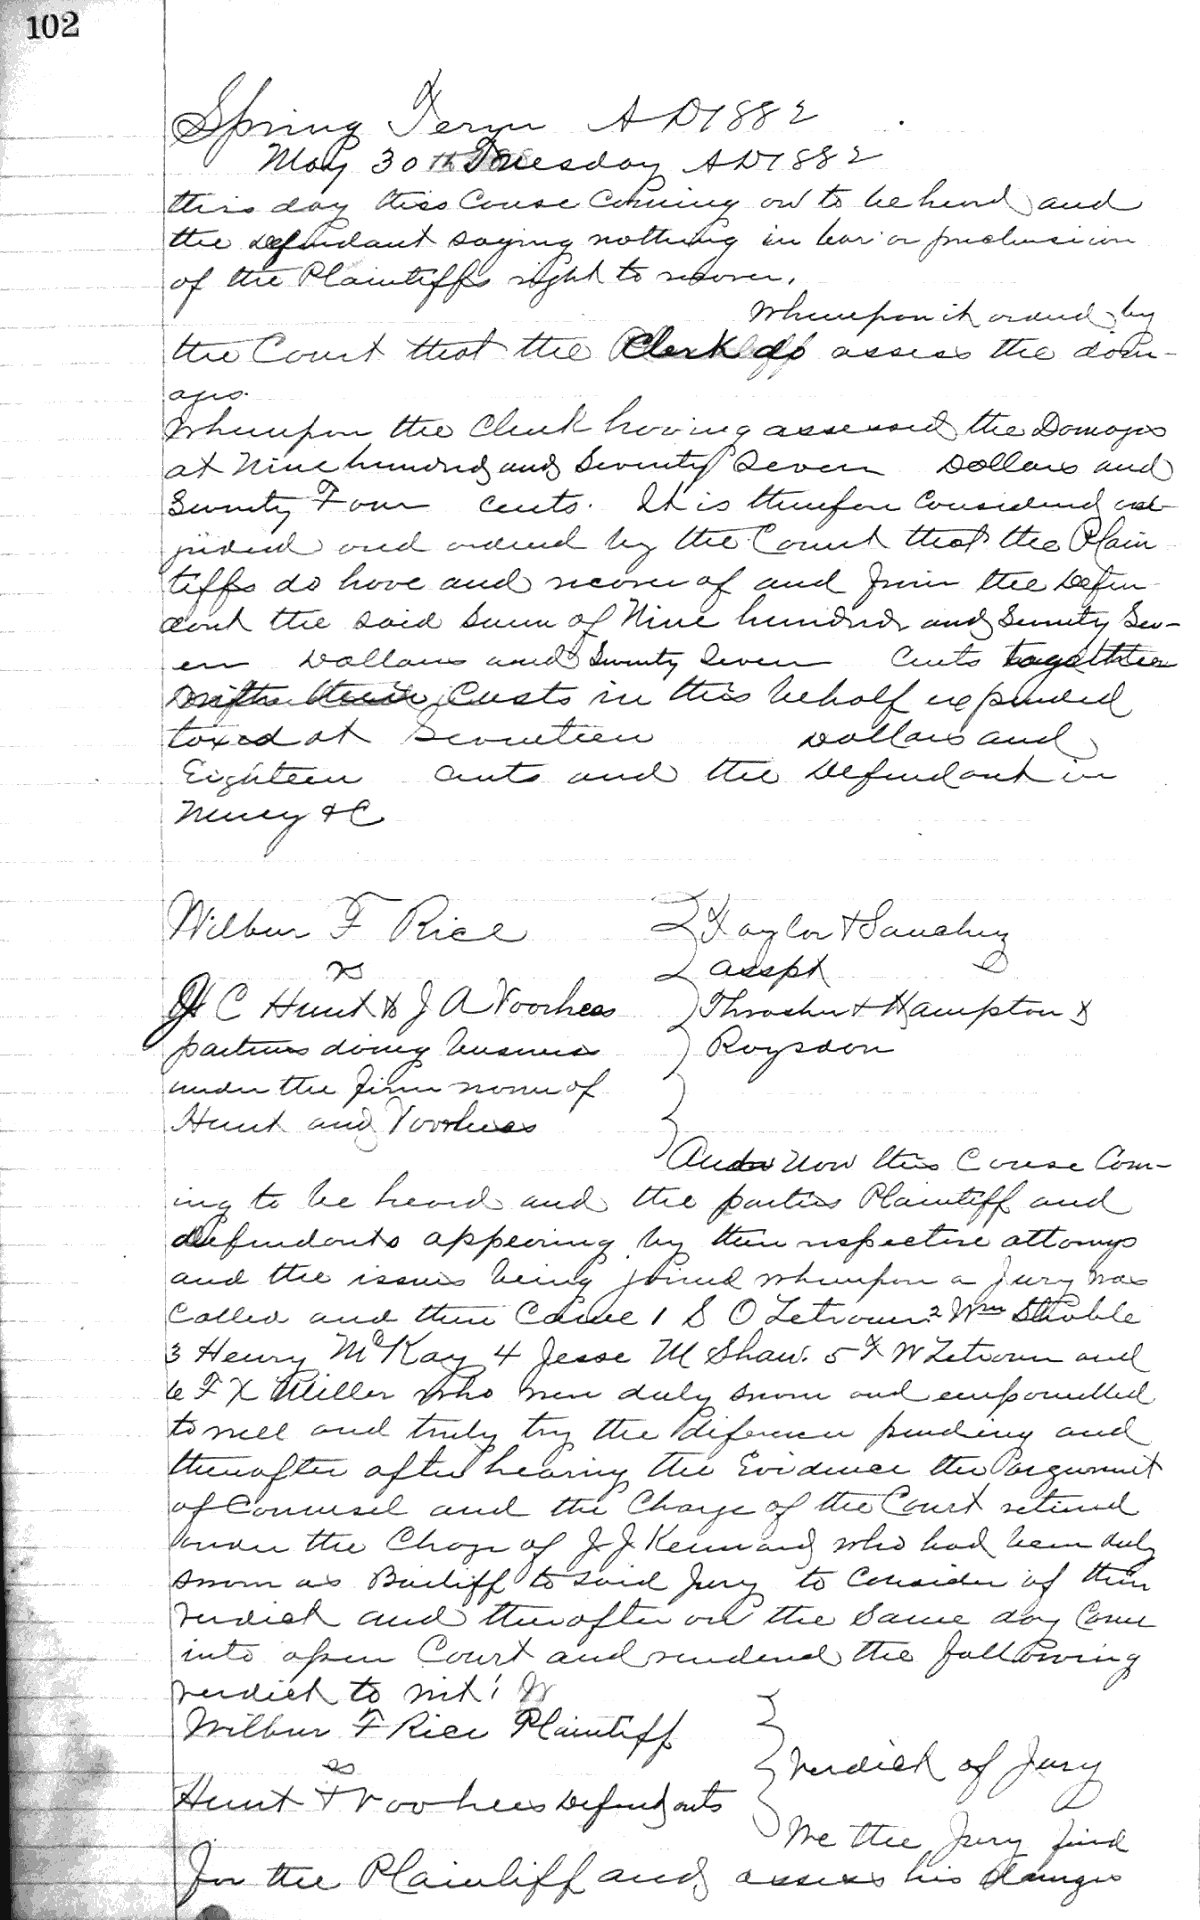 102
Spring Term AD1882
May 30th Tuesday AD1882
this day this Cause Coming on to be heard and
the defendant saying nothing in bar or preclusion
of the Plaintiffs right to recover.
Whereupon it ordered by
the Court that the Clerk do assess the dam-
ages.
Whereupon the Clerk having assessed the Damages
at Nine hundred and Seventy Seven Dollars and
Seventy Four cents. It is therefore Considered ad-
judged and ordered by the Court that the Plain
tiffs do have and recover of and from the Defen
dant the said Sum of Nine hundred and Seventy Sev-
en Dollars and Seventy Seven Cents together
with their Costs in this behalf expended
taxed at Seventeen Dollars and
Eighteen cents and the Defendant in
Mercy &C
Wilbur F Rice
vs
H C Hunt & J A Voorhees
partners doing business
under the firm name of
Hunt and Voorhees
Taylor & Sanchez
asspt
Thrasher & Hampton &
Roysdon
And Now this Cause Com-
ing to be heard and the parties Plaintiff and
defendants appearing by their respective attorneys
and the issues being joined whereupon a Jury was
Called and then Came 1 S O Zetrouer 2 Wm Stroble
3 Henry McKay 4 Jesse M Shaw. 5 W Zetrouer and
6 F X Miller who were duly sworn and empanelled
to well and truly try the difference pending and
thereafter after hearing the Evidence the argument
of Counsel and the Charge of the Court retired
under the Charge of J J Kennard who had been duly
sworn as Bailiff to said Jury to Consider of their
verdict and thereafter on the Same day Came
into open Court and rendered the following
verdict to wit: W
Wilbur F Rice Plaintiff
vs
Hunt & Voorhees Defendants
Verdict of Jury
We the Jury find
for the Plaintiff and assess his damages